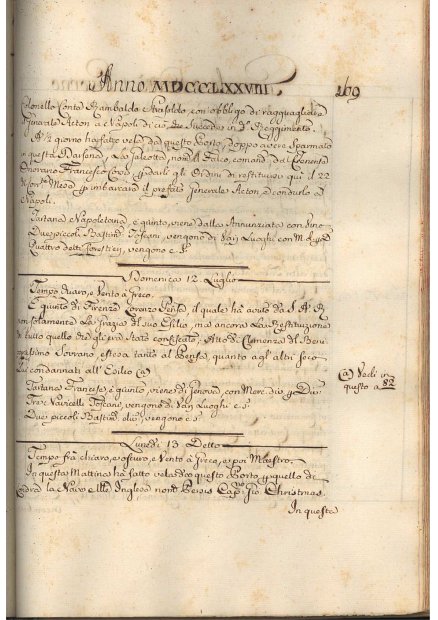 Anno MDCCLXXVIII 169
Colonello Conte Rambaldo Strasoldo, con obbligo di ragguagliare il
Generale Acton a Napoli di ciò, che Succeda in d.º Reggimento.
A ½ giorno ha fatto vela da questo Porto, doppo avere Sparmato
in questa Darsena, La Galeotta, nom.ª il Falco, comand.ª dal Tenente
Onorario Francesco
Gli Ordini di restituirsi qui il 22
del corr.te Mese p imbarcarvi il prefato Generale Acton e condurlo a
Napoli.
Tartana Napoletana, è quinto, viene dalla Annunziata con Vino
Due piccoli Bastim.ti Toscani, vengono di Van Luoghi con M.
Quattro detti Forestieri, vengono c. S.
Domenica 12 Luglio
Tempo chiaro, e Vento à Greco.
È quinto di Firenze Lorenzo Pensa, il quale hà avuto da S. A. R.
non solamente La Grazia del suo Esilio, ma ancora La Restituzione
di tutto quello che gli era Stato confiscato; Atto di Clemenza del Beni
gnissimo Sovrano, estesa tanto al Pensa, quanto agl'altri seco
Lui condannati all'Esilio (a)
(a) Vedi in
questo a 82
Tartana Francese, è quinto, viene di Genova, con Merc.e div.e p Div.i
Tre Navicelli Toscani, vengono di Van Luoghi c. S.
Due piccoli Bastim.ti div.i, vengono c. S.
Lunedì 13 Detto
Tempo frà chiaro, e oscuro, e Vento à Greco, e poi Maestro.
In questa Mattina hà fatto vela da questo Porto p quello di
Londra La Nave Inglese nom.ª Betsis Cap.no Gio. Christmas.
In questa